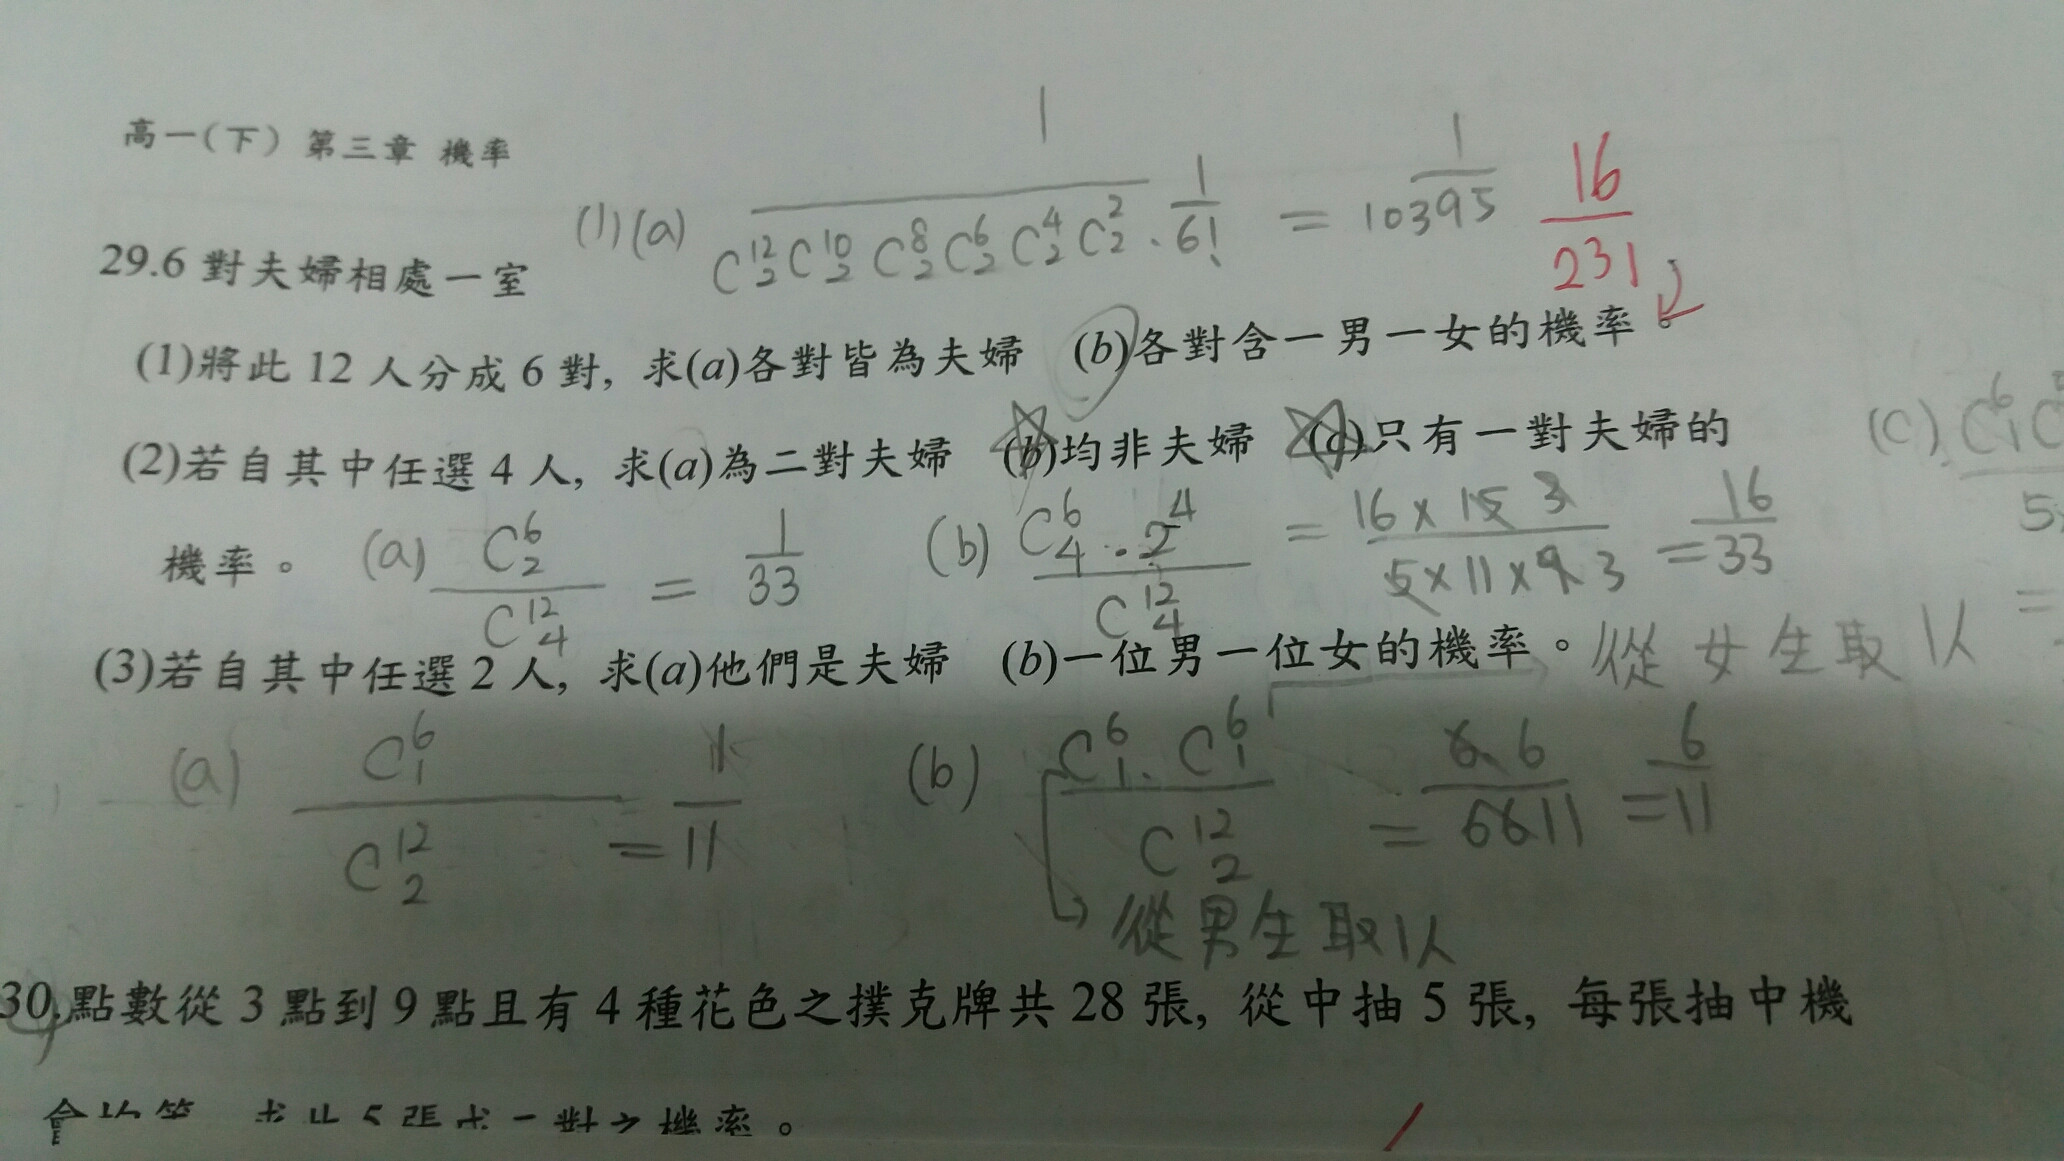 高一(下) 第三章 機率
(1)(a) 1/(C¹²₂C¹⁰₂C⁸₂C⁶₂C⁴₂C²₂·1/6!) = 1/10395 16/231
29.6對夫婦相處一室
(1)將此12人分成6對, 求(a)各對皆為夫婦 (b)各對含一男一女的機率。
(2)若自其中任選4人, 求(a)為二對夫婦 (b)均非夫婦 (c)只有一對夫婦的
機率。 (a) C⁶₂/C¹²₄ = 1/33 (b) C⁶₄·2⁴/C¹²₄ = 16×15 3/5×11×9 3 = 16/33
(c)
(3)若自其中任選2人, 求(a)他們是夫婦 (b)一位男一位女的機率。 從女生取1人
(a) C⁶₁/C¹²₂ = 1/11 (b) C⁶₁·C⁶₁/C¹²₂ = 6·6/6611 = 6/11
從男生取1人
30.點數從3點到9點且有4種花色之撲克牌共28張, 從中抽5張, 每張抽中機
會均等, 求此5張成二對之機率。